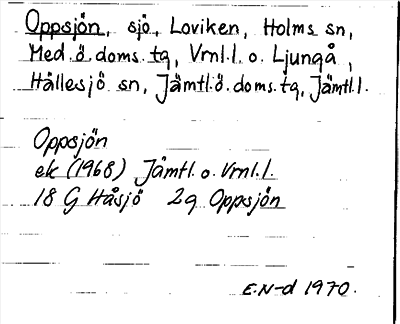 Oppsjön, sjö, Loviken, Holms sn,
Med. ö. doms. tg, Vrnl.l. o. Ljungå,
Hällesjö sn, Jämtl. ö. doms. tg, Jämtl.l.
Oppsjön
ek (1968) Jämtl. o. Vrnl. l.
18 G Håsjö 2g Oppsjön
E.N-d 1970.